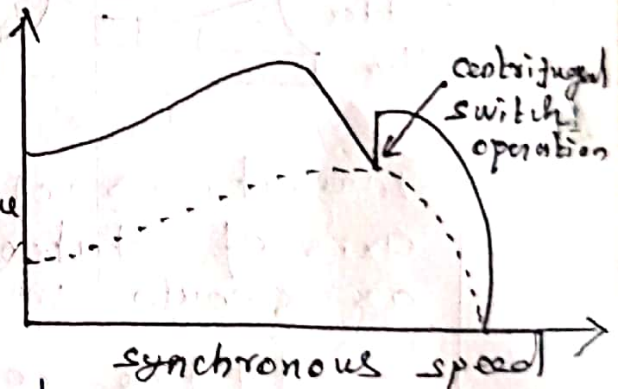 centrifugal
switch
operation
synchronous speed